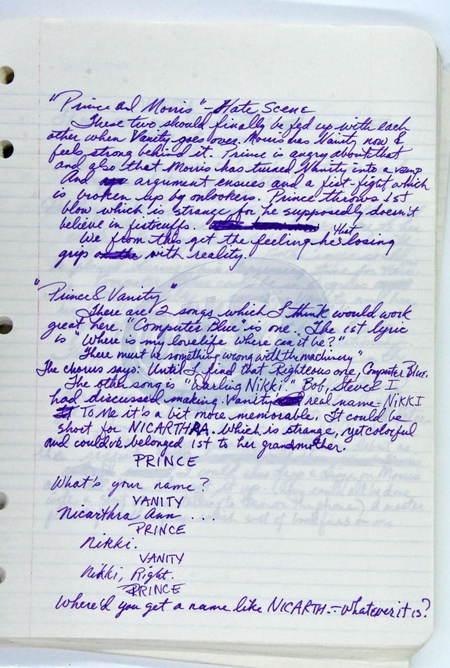 "Prince and Morris" – Hate Scene
These two should finally be fed up with each
other when Vanity goes over. Morris has Vanity now &
feels strong behind it. Prince is angry about that
and also that Morris has turned Vanity into a vamp
And argument ensues and a fist-fight which
is broken up by onlookers. Prince throws 1st
blow which is strange for he supposedly doesn't
believe in fistcuffs.
We from this get the feeling that he's losing
grip with reality.
"Prince & Vanity"
There are 2 songs which I think would work
great here. "Computer Blue" is one. The 1st lyric
is "Where is my lovelife where can it be?"
"There must be something wrong with the machinery"
The chorus says: Until I find that Righteous one, Computer Blue.
The other song is "Darling Nikki." Bob, Steve & I
had discussed making Vanity real name NIKKI
To me it's a bit more memorable. It could be
short for NICARTHRA. Which is strange, yet colorful
and could've belonged 1st to her grandmother.
PRINCE
What's your name?
VANITY
Nicarthra Ann ...
PRINCE
Nikki.
VANITY
Nikki, Right.
PRINCE
Where'd you get a name like NICARTH.–Whatever it is?